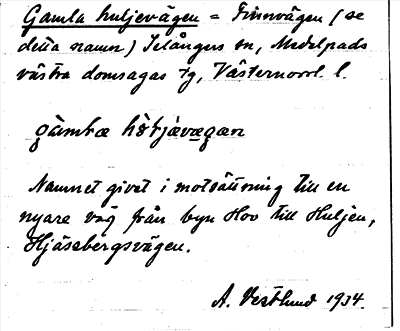 Gamla huljevägen = Finnvägen (se
detta namn) Selångers sn, Medelpads
västra domsagas tg, Västernorrl. l.
gàmlæ
Namnet givet i motsättning till en
nyare väg från byn Hov till Huljen,
Hjässbergsvägen.
A. Vestlund 1934.